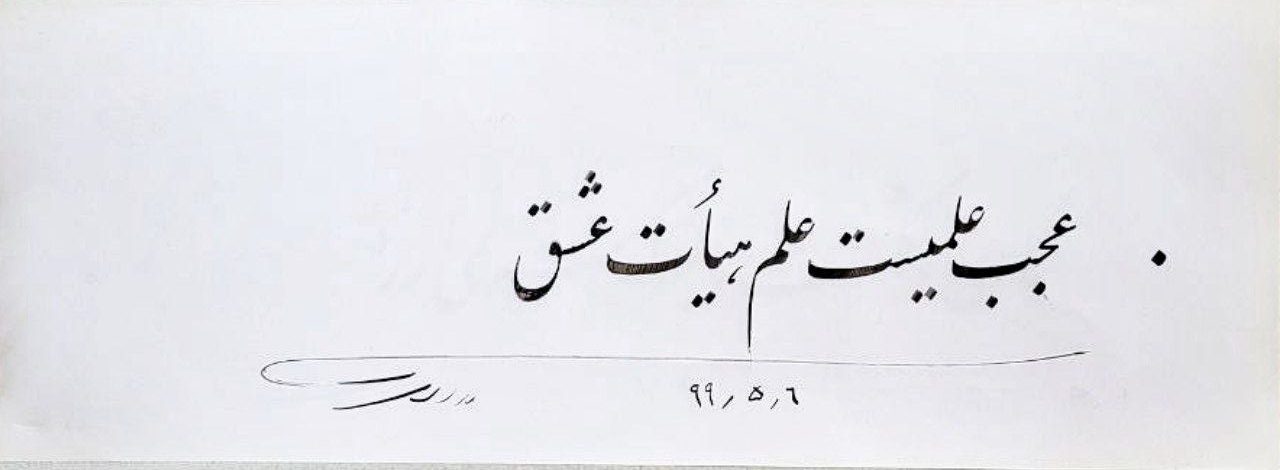 عجب علمیست علم هیأت عشق
۹۹٫۵٫۶